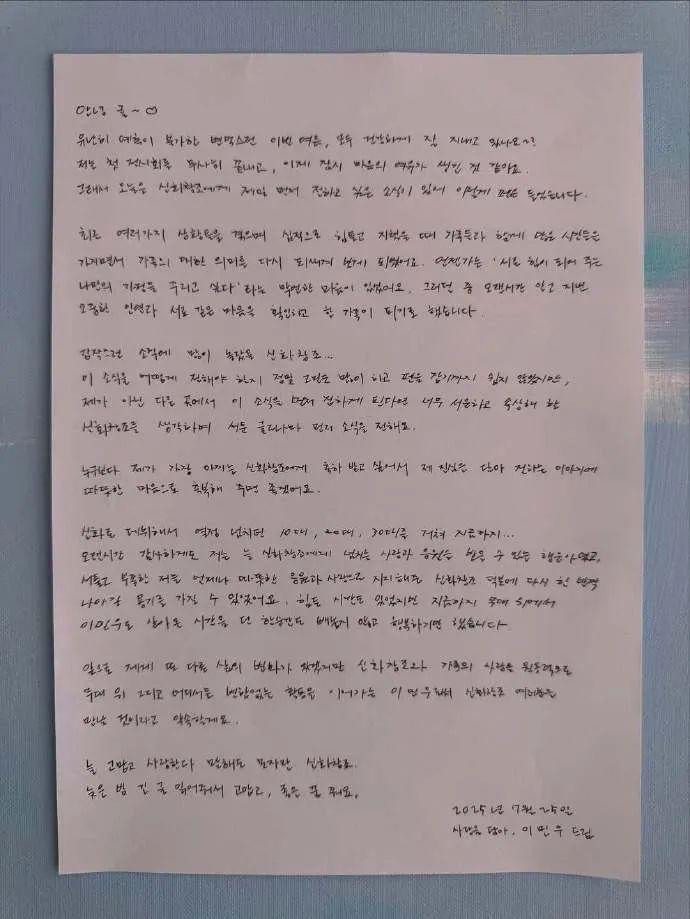 안녕 귤~♡
유난히 예측이 불가한 변덕스런 이번 여름, 모두 건강하게 잘 지내고 있나요~?
저는 첫 전시회를 무사히 끝내고, 이제 잠시 마음의 여유가 생긴 것 같아요.
그래서 오늘은 신화창조에게 제일 먼저 전하고 싶은 소식이 있어 이렇게 펜을 들었습니다.
최근 여러가지 상황들을 겪으며 심적으로 힘들고 지쳤을 때 가족들과 함께 많은 시간들을
가지면서 가족의 대한 의미를 다시 되새겨 보게 되었어요. 언젠가는 '서로 힘이 되어 주는
나만의 가정을 꾸리고 싶다'라는 막연한 마음이 있었어요. 그러던 중 오랜시간 알고 지낸
소중한 인연과 서로 같은 마음을 확인하고 한 가족이 되기로 했습니다.
갑작스런 소식에 많이 놀랐을 신화창조...
이 소식을 어떻게 전해야 할지 정말 고민도 많이 하고 펜을 잡기까지 쉽지 않았지만,
제가 아닌 다른 곳에서 이 소식을 먼저 접하게 된다면 너무 서운하고 속상해 할
신화창조를 생각하며 서툰 글이나마 먼저 소식을 전해요.
누구보다 제가 가장 아끼는 신화창조에게 축하 받고 싶어서 제 진심을 담아 전하는 이야기에
따뜻한 마음으로 축복해 주면 좋겠어요.
신화로 데뷔해서 열정 넘치던 10대, 20대, 30대를 거쳐 지금까지...
오랜시간 감사하게도 저는 늘 신화창조에게 넘치는 사랑과 응원을 받을 수 있는 행운아였고,
서툴고 부족한 저를 언제나 따뜻한 응원과 사랑으로 지지해준 신화창조 덕분에 다시 한 번 더
나아갈 용기를 가질 수 있었어요. 힘든 시간도 있었지만 지금까지 무대 위에서
이민우로 살아온 시간을 단 한순간도 빼놓지 않고 행복하기만 했습니다.
앞으로 제게 또 다른 삶의 변화가 있겠지만 신화창조와 가족의 사랑을 원동력으로
무대 위 그리고 어디서든 변함없는 활동을 이어가는 이민우로서 신화창조 여러분을
만날 것이라고 약속할게요.
늘 고맙고 사랑한다 말해도 모자란 신화창조.
늦은 밤 긴 글 읽어줘서 고맙고, 좋은 꿈 꿔요.
2025년 7월 25일
사랑을 담아, 이민우 드림